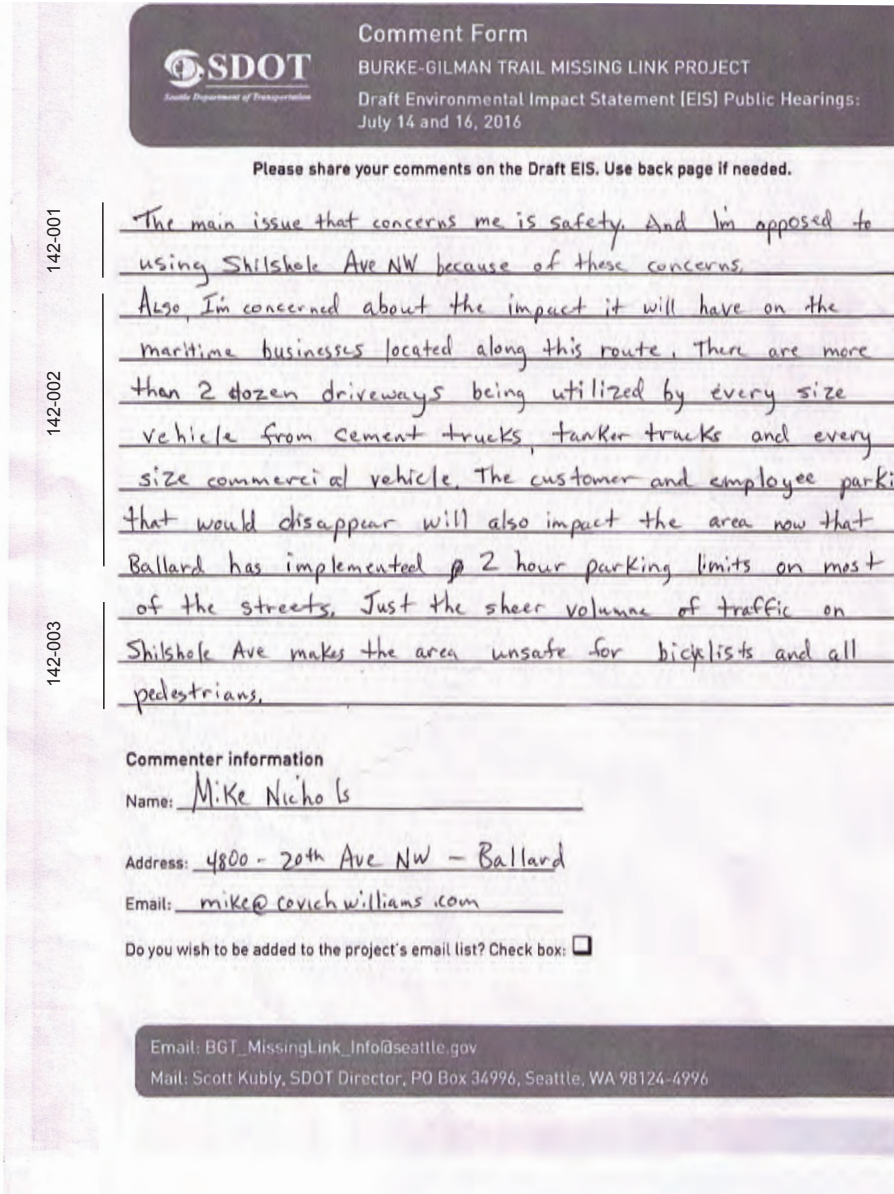 SDOT
Seattle Department of Transportation
Comment Form
BURKE-GILMAN TRAIL MISSING LINK PROJECT
Draft Environmental Impact Statement (EIS) Public Hearings:
July 14 and 16, 2016
Please share your comments on the Draft EIS. Use back page if needed.
142-001
The main issue that concerns me is safety. And I'm opposed to
using Shilshole Ave NW because of these concerns.
142-002
Also, I'm concerned about the impact it will have on the
maritime businesses located along this route. There are more
than 2 dozen driveways being utilized by every size
vehicle from cement trucks, tanker trucks and every
size commercial vehicle. The customer and employee parki
that would disappear will also impact the area now that
Ballard has implemented 2 hour parking limits on most
142-003
of the streets. Just the sheer volumne of traffic on
Shilshole Ave makes the area unsafe for bicyclists and all
pedestrians.
Commenter information
Name: Mike Nichols
Address: 4800 - 20th Ave NW - Ballard
Email: mike@covichwilliams.com
Do you wish to be added to the project's email list? Check box:
Email: BGT_MissingLink_Info@seattle.gov
Mail: Scott Kubly, SDOT Director, PO Box 34996, Seattle, WA 98124-4996